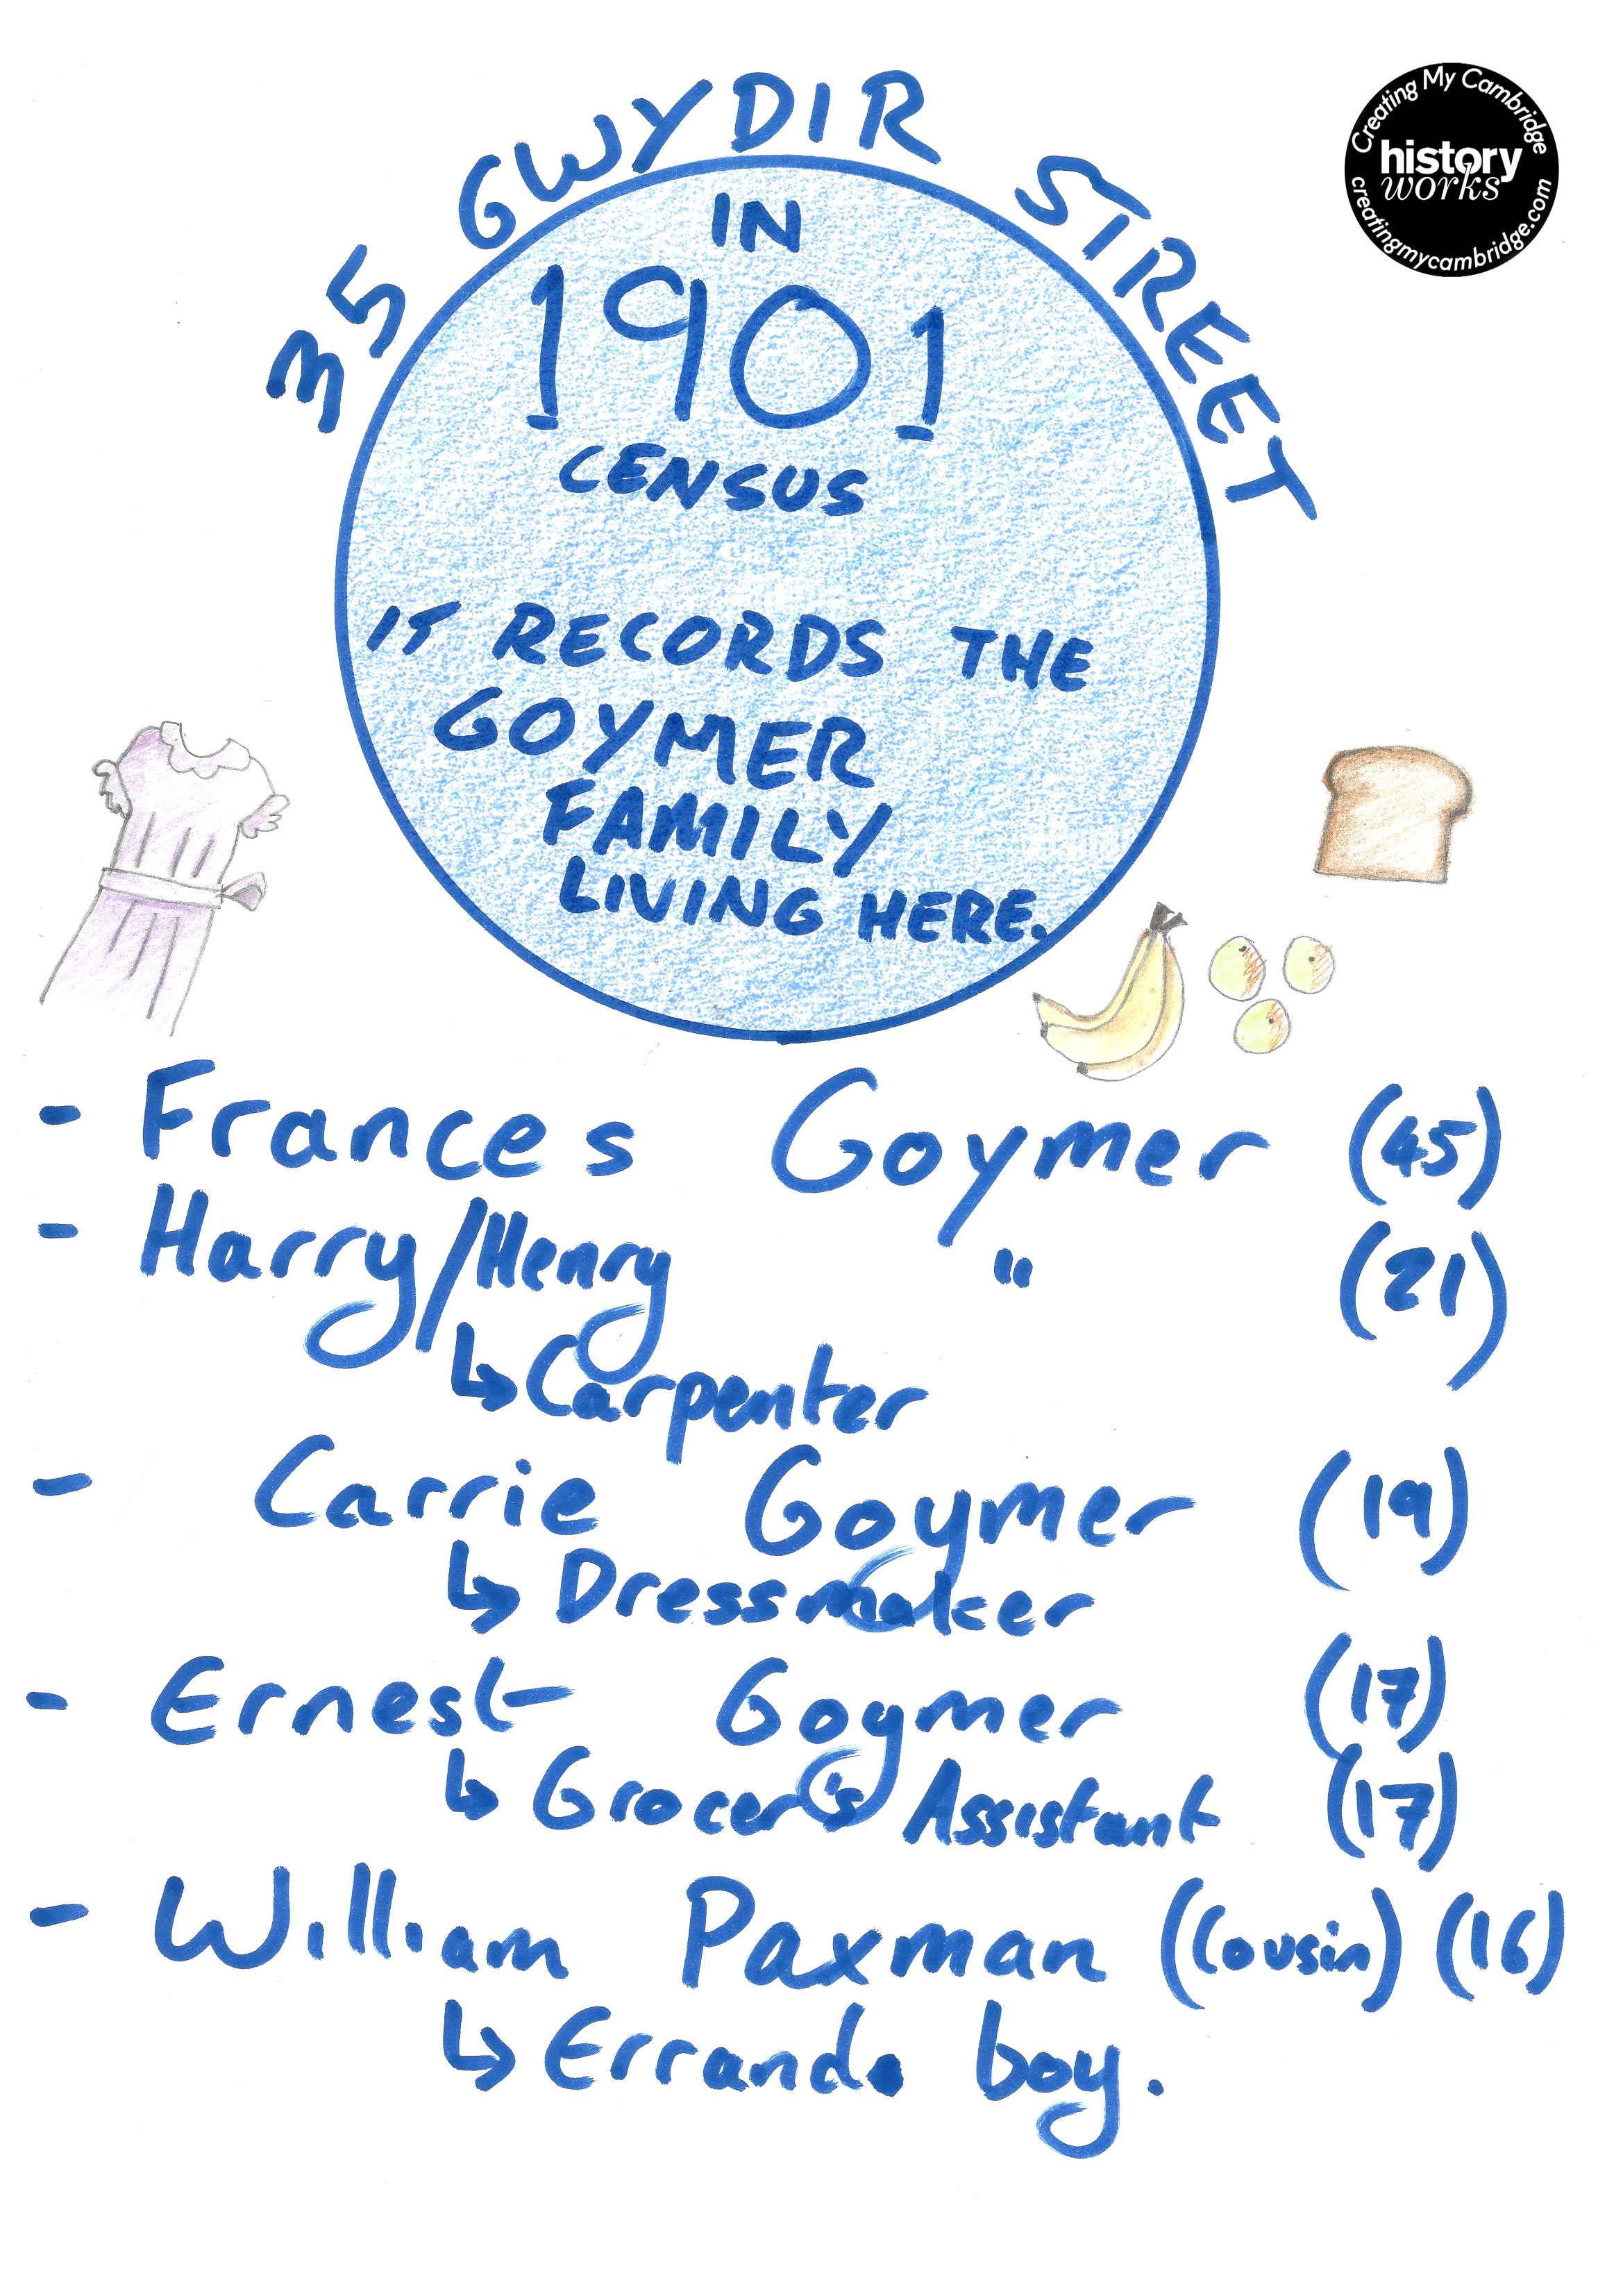 35 GWYDIR STREET
Creating My Cambridge
history
works
creatingmycambridge.com
IN
1901
CENSUS
IT RECORDS THE
GOYMER
FAMILY
LIVING HERE.
- Frances Goymer (45)
- Harry/Henry " (21)
↳ Carpenter
- Carrie Goymer (19)
↳ Dressmaker
- Ernest Goymer (17)
↳ Grocer's Assistant (17)
- William Paxman (Cousin) (16)
↳ Errand. boy.